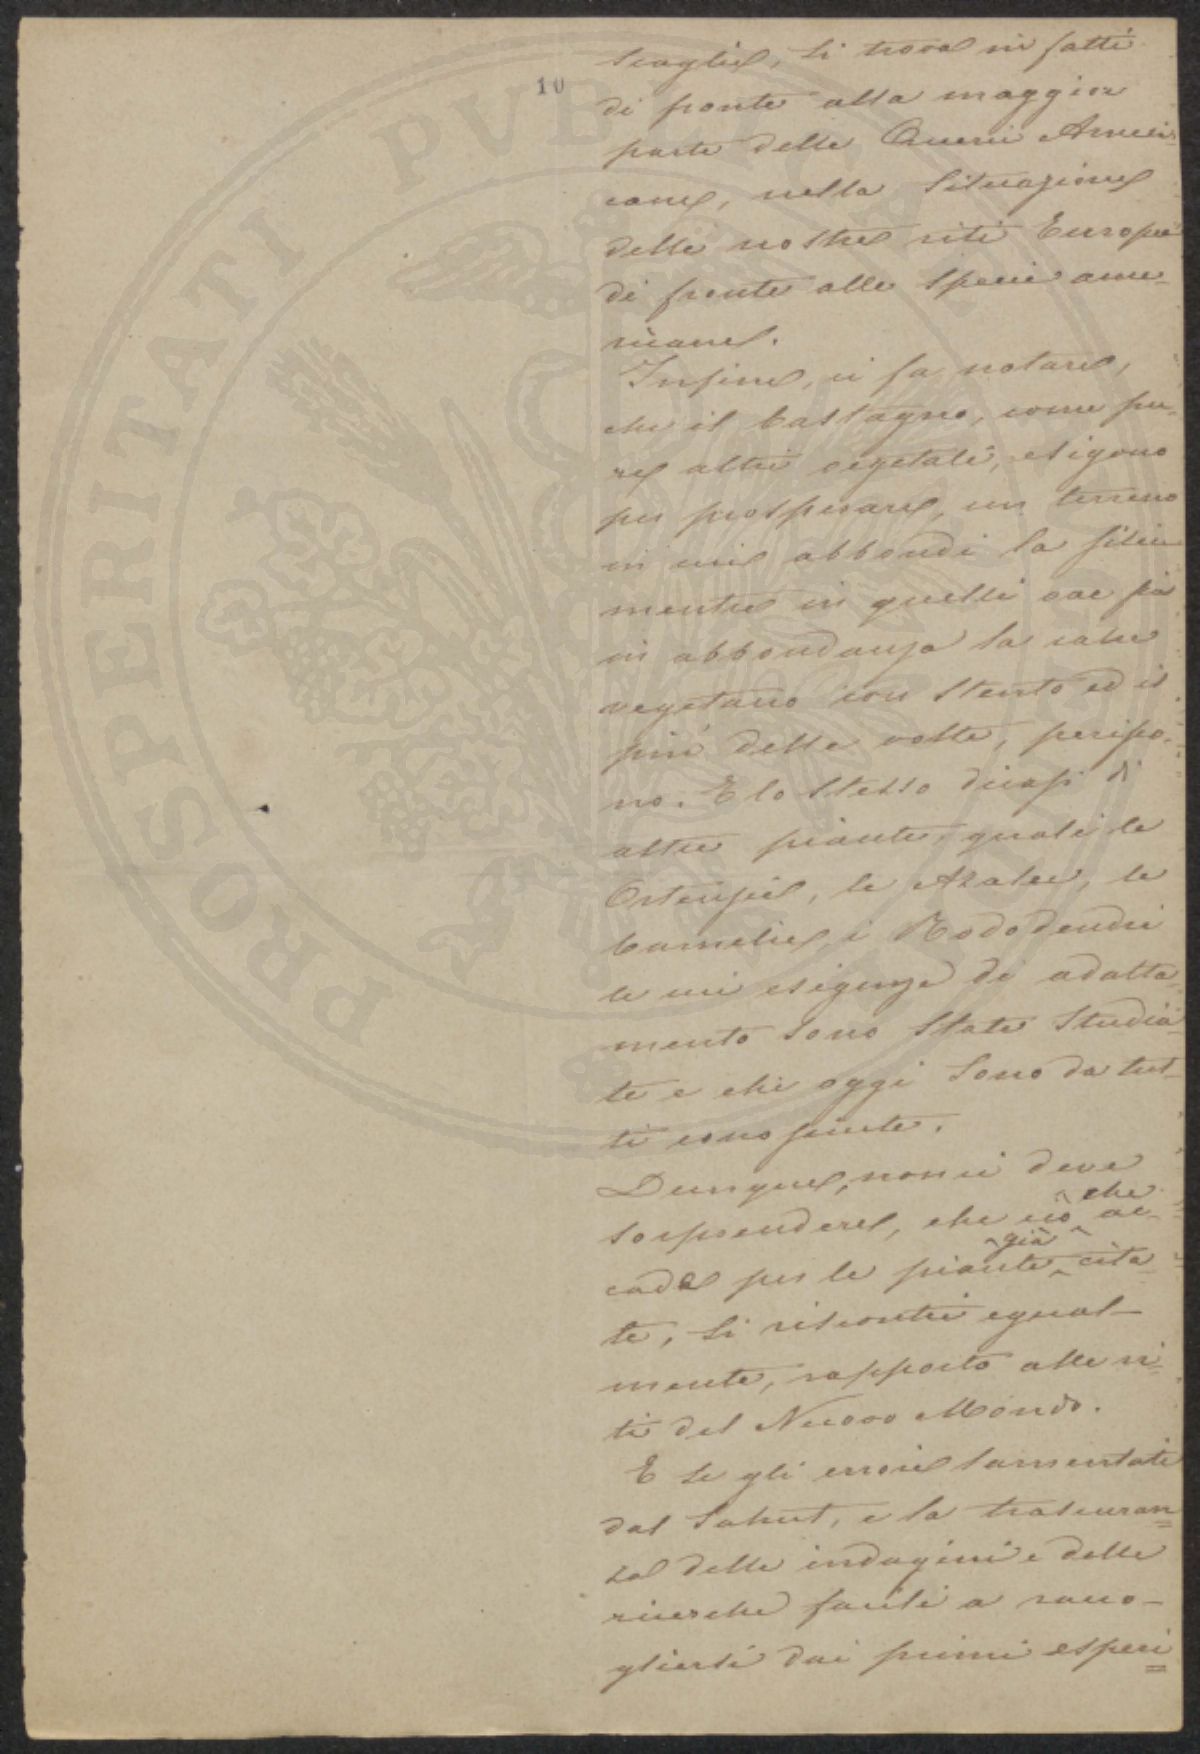 10
scaglie, si trova in fatti
di fronte alla maggior
parte delle Querci Ameri-
cane, nella situazione
delle nostre viti Europee
di fronte alle specie ame-
ricane.
Infine, ci fa notare,
che il Castagno, come pu-
re altri vegetali, esigono
per prosperare, un terreno
in cui abbondi la silice
mentre in quelli ove sia
in abbondanza la calce
vegetano con stento ed il
più delle volte, perisco-
no. E lo stesso dicasi di
altre piante, quali le
Ortensie, le Azalee, le
Camelie, i Rododendri
le cui esigenze di adatta-
mento sono state studia-
te e che oggi sono da tut-
ti conosciute.
Dunque, non ci deve
sorprendere, che ciò che ac-
cade per le piante già cita-
te, si riscontri egual-
mente, rapporto alle vi-
ti del Nuovo Mondo.
E se gli errori lamentati
dal Sahut, e la trascuran=
za delle indagini e delle
ricerche facili a racco-
gliersi dai primi esperi=
PROSPERITATI PVBLICAE